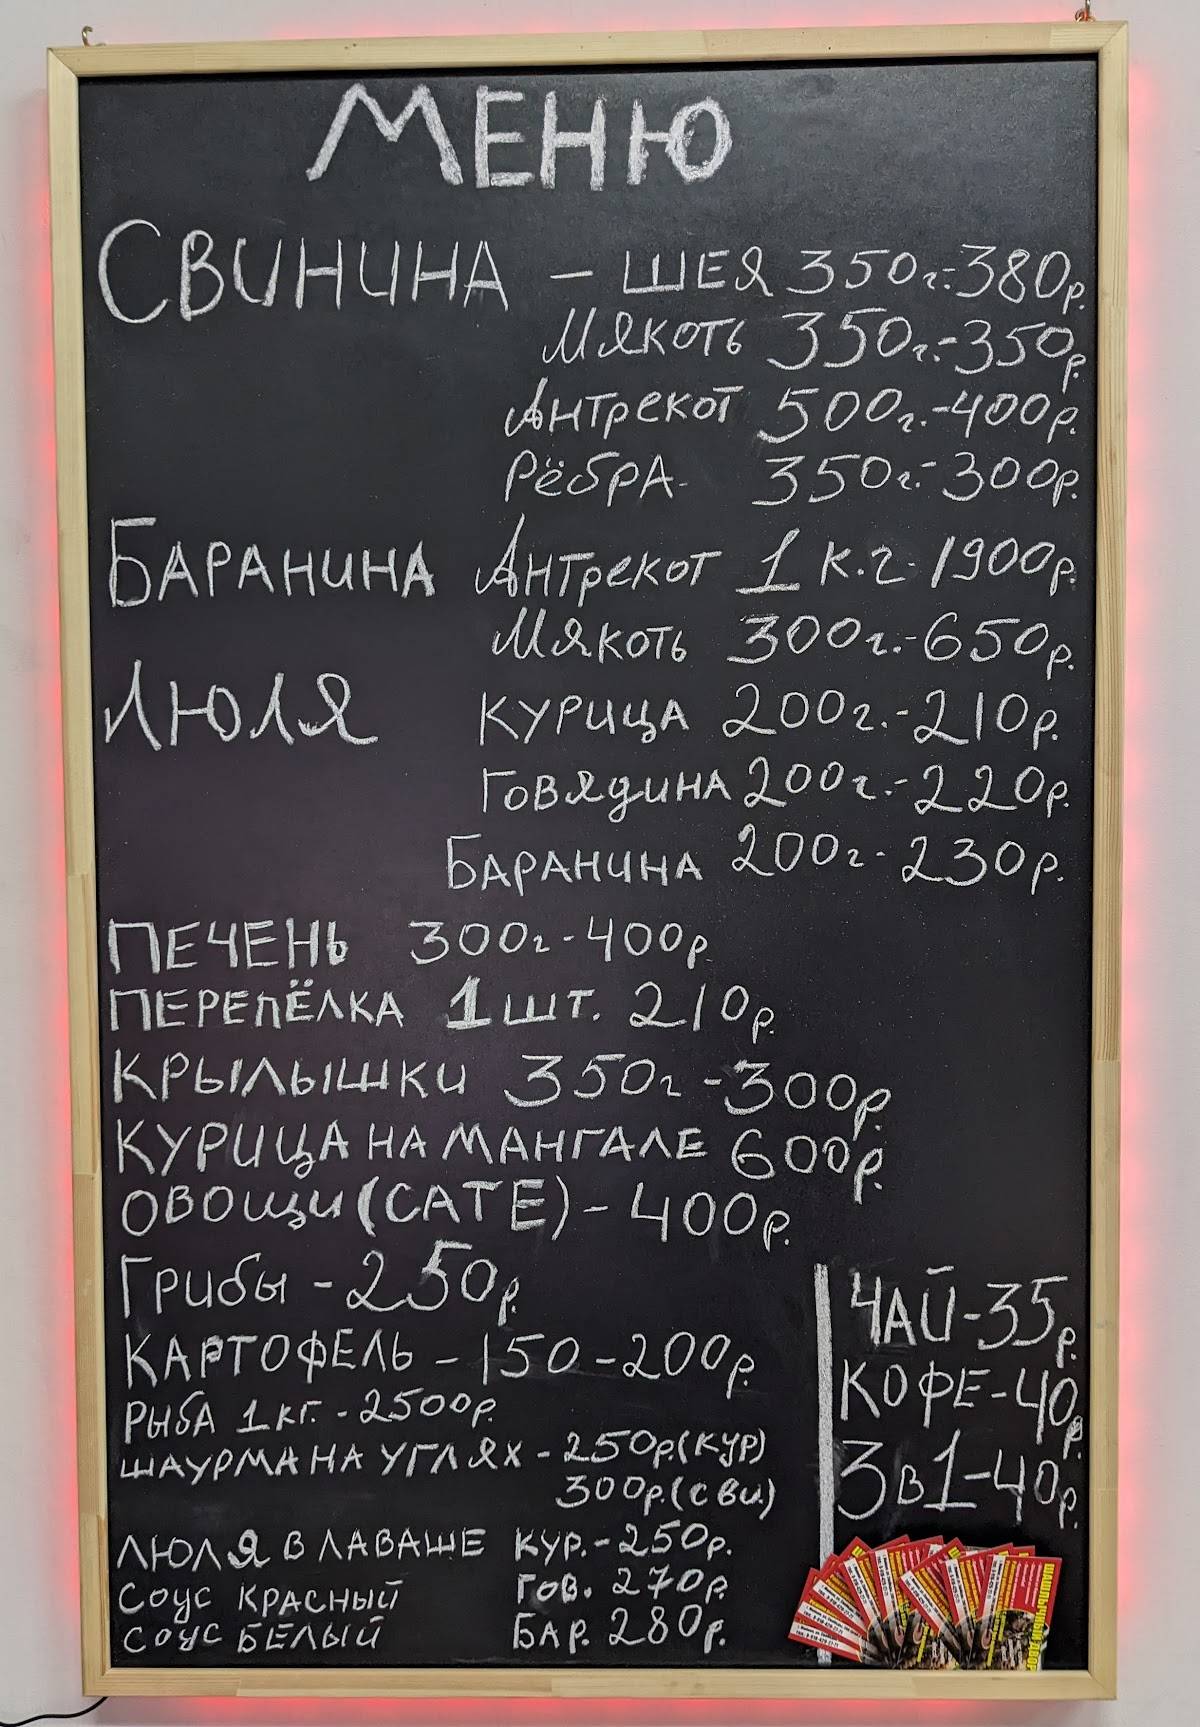 МЕНЮ
СВИНИНА - ШЕЯ 350г.-380р.
МЯКОТЬ 350г.-350р.
АНТРЕКОТ 500г.-400р.
РЁБРА- 350г.-300р.
БАРАНИНА АНТРЕКОТ 1 к.г.-1900р.
МЯКОТЬ 300г.-650р.
ЛЮЛЯ КУРИЦА 200г.-210р.
ГОВЯДИНА 200г.-220р.
БАРАНИНА 200г-230р.
ПЕЧЕНЬ 300г-400р.
ПЕРЕПЁЛКА 1шт. 210р.
КРЫЛЫШКИ 350г-300р.
КУРИЦА НА МАНГАЛЕ 600р.
ОВОЩИ(САТЕ)-400р.
ГРИБЫ-250р.
КАРТОФЕЛЬ-150-200р.
РЫБА 1кг.-2500р.
ШАУРМА НА УГЛЯХ-250р.(КУР)
300р.(СВИ.)
ЛЮЛЯ В ЛАВАШЕ КУР.-250р.
СОУС КРАСНЫЙ ГОВ. 270р.
СОУС БЕЛЫЙ БАР. 280р.
ЧАЙ-35р.
КОФЕ-40р.
3в1-40р.
ШАШЛЫЧНЫЙ ДВОР